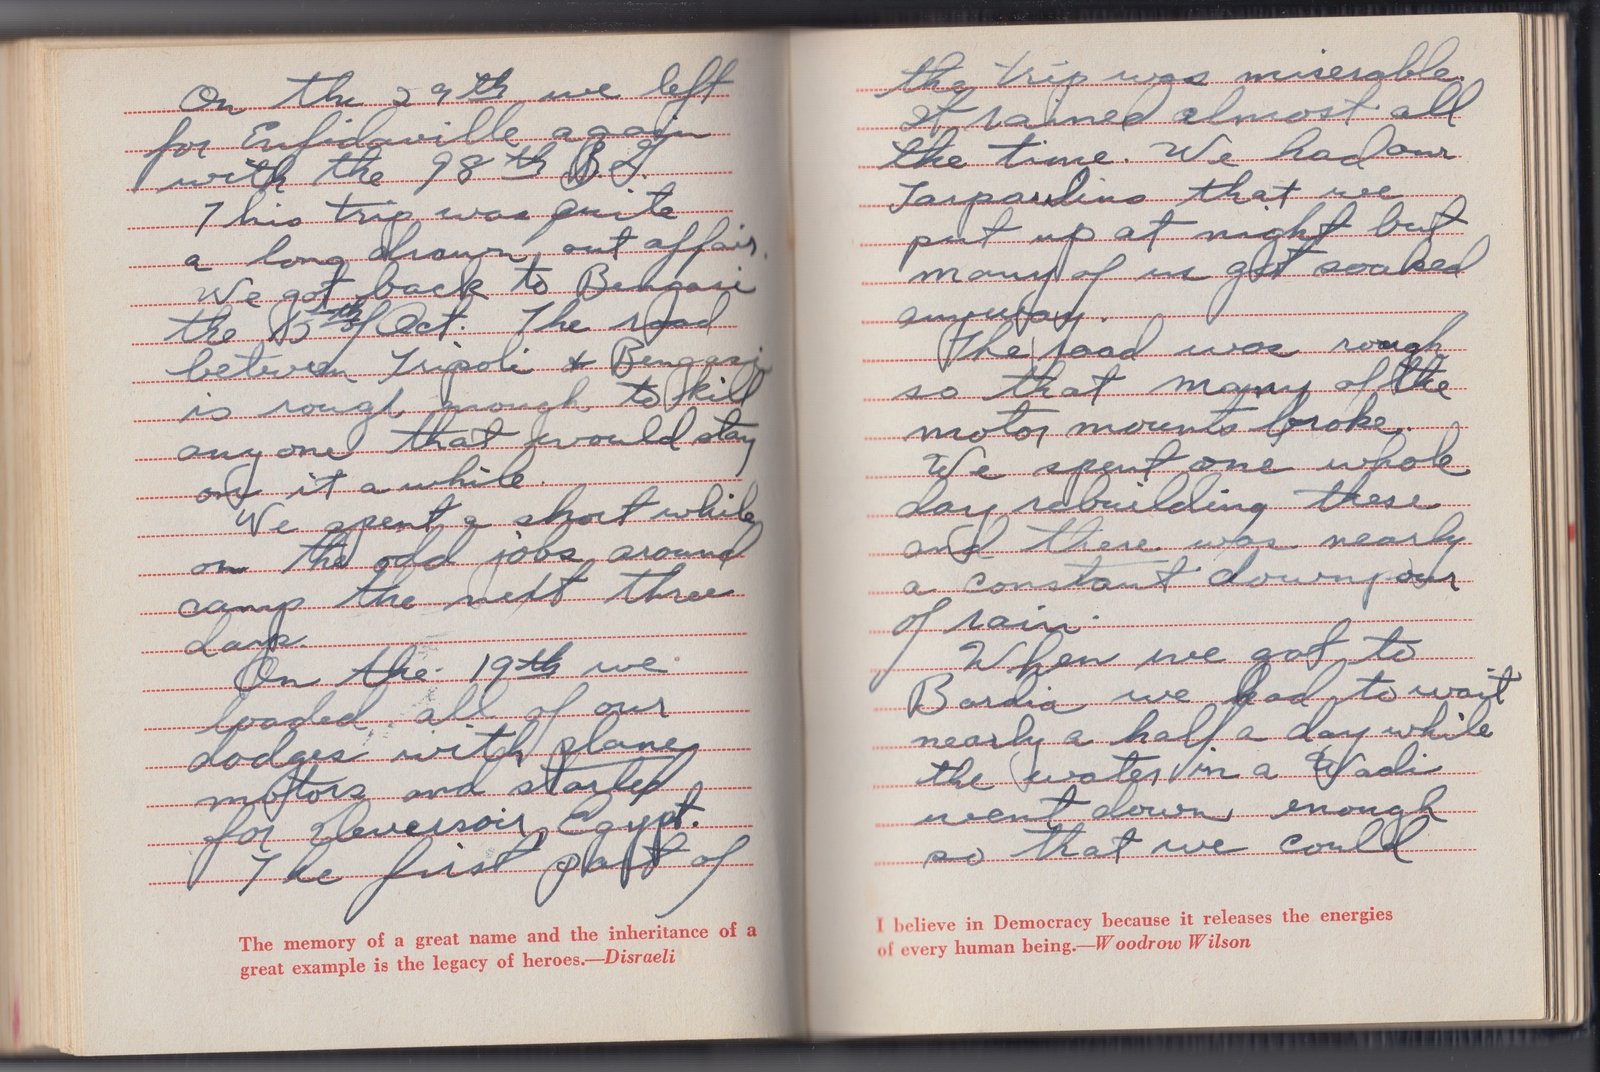 On the 29th we left
for Enfidaville again
with the 98th B.G.
This trip was quite
a long drawn out affair.
We got back to Bengasi
the 15th of Oct. The road
between Tripoli & Bengasi
is rough enough to kill
anyone that would stay
on it a while.
We spent a short while
on the odd jobs around
camp the next three
days.
On the 19th we
loaded all of our
dodges with plane
motors and started
for Deversoir, Egypt.
The first part of
The memory of a great name and the inheritance of a
great example is the legacy of heroes.—Disraeli
the trip was miserable.
It rained almost all
the time. We had our
Tarpaulins that we
put up at night but
many of us got soaked
anyway.
The road was rough
so that many of the
motor mounts broke.
We spent one whole
day rebuilding these
and there was nearly
a constant downpour
of rain.
When we got to
Bardia we had to wait
nearly a half a day while
the water in a Wadi
went down enough
so that we could
I believe in Democracy because it releases the energies
of every human being.—Woodrow Wilson